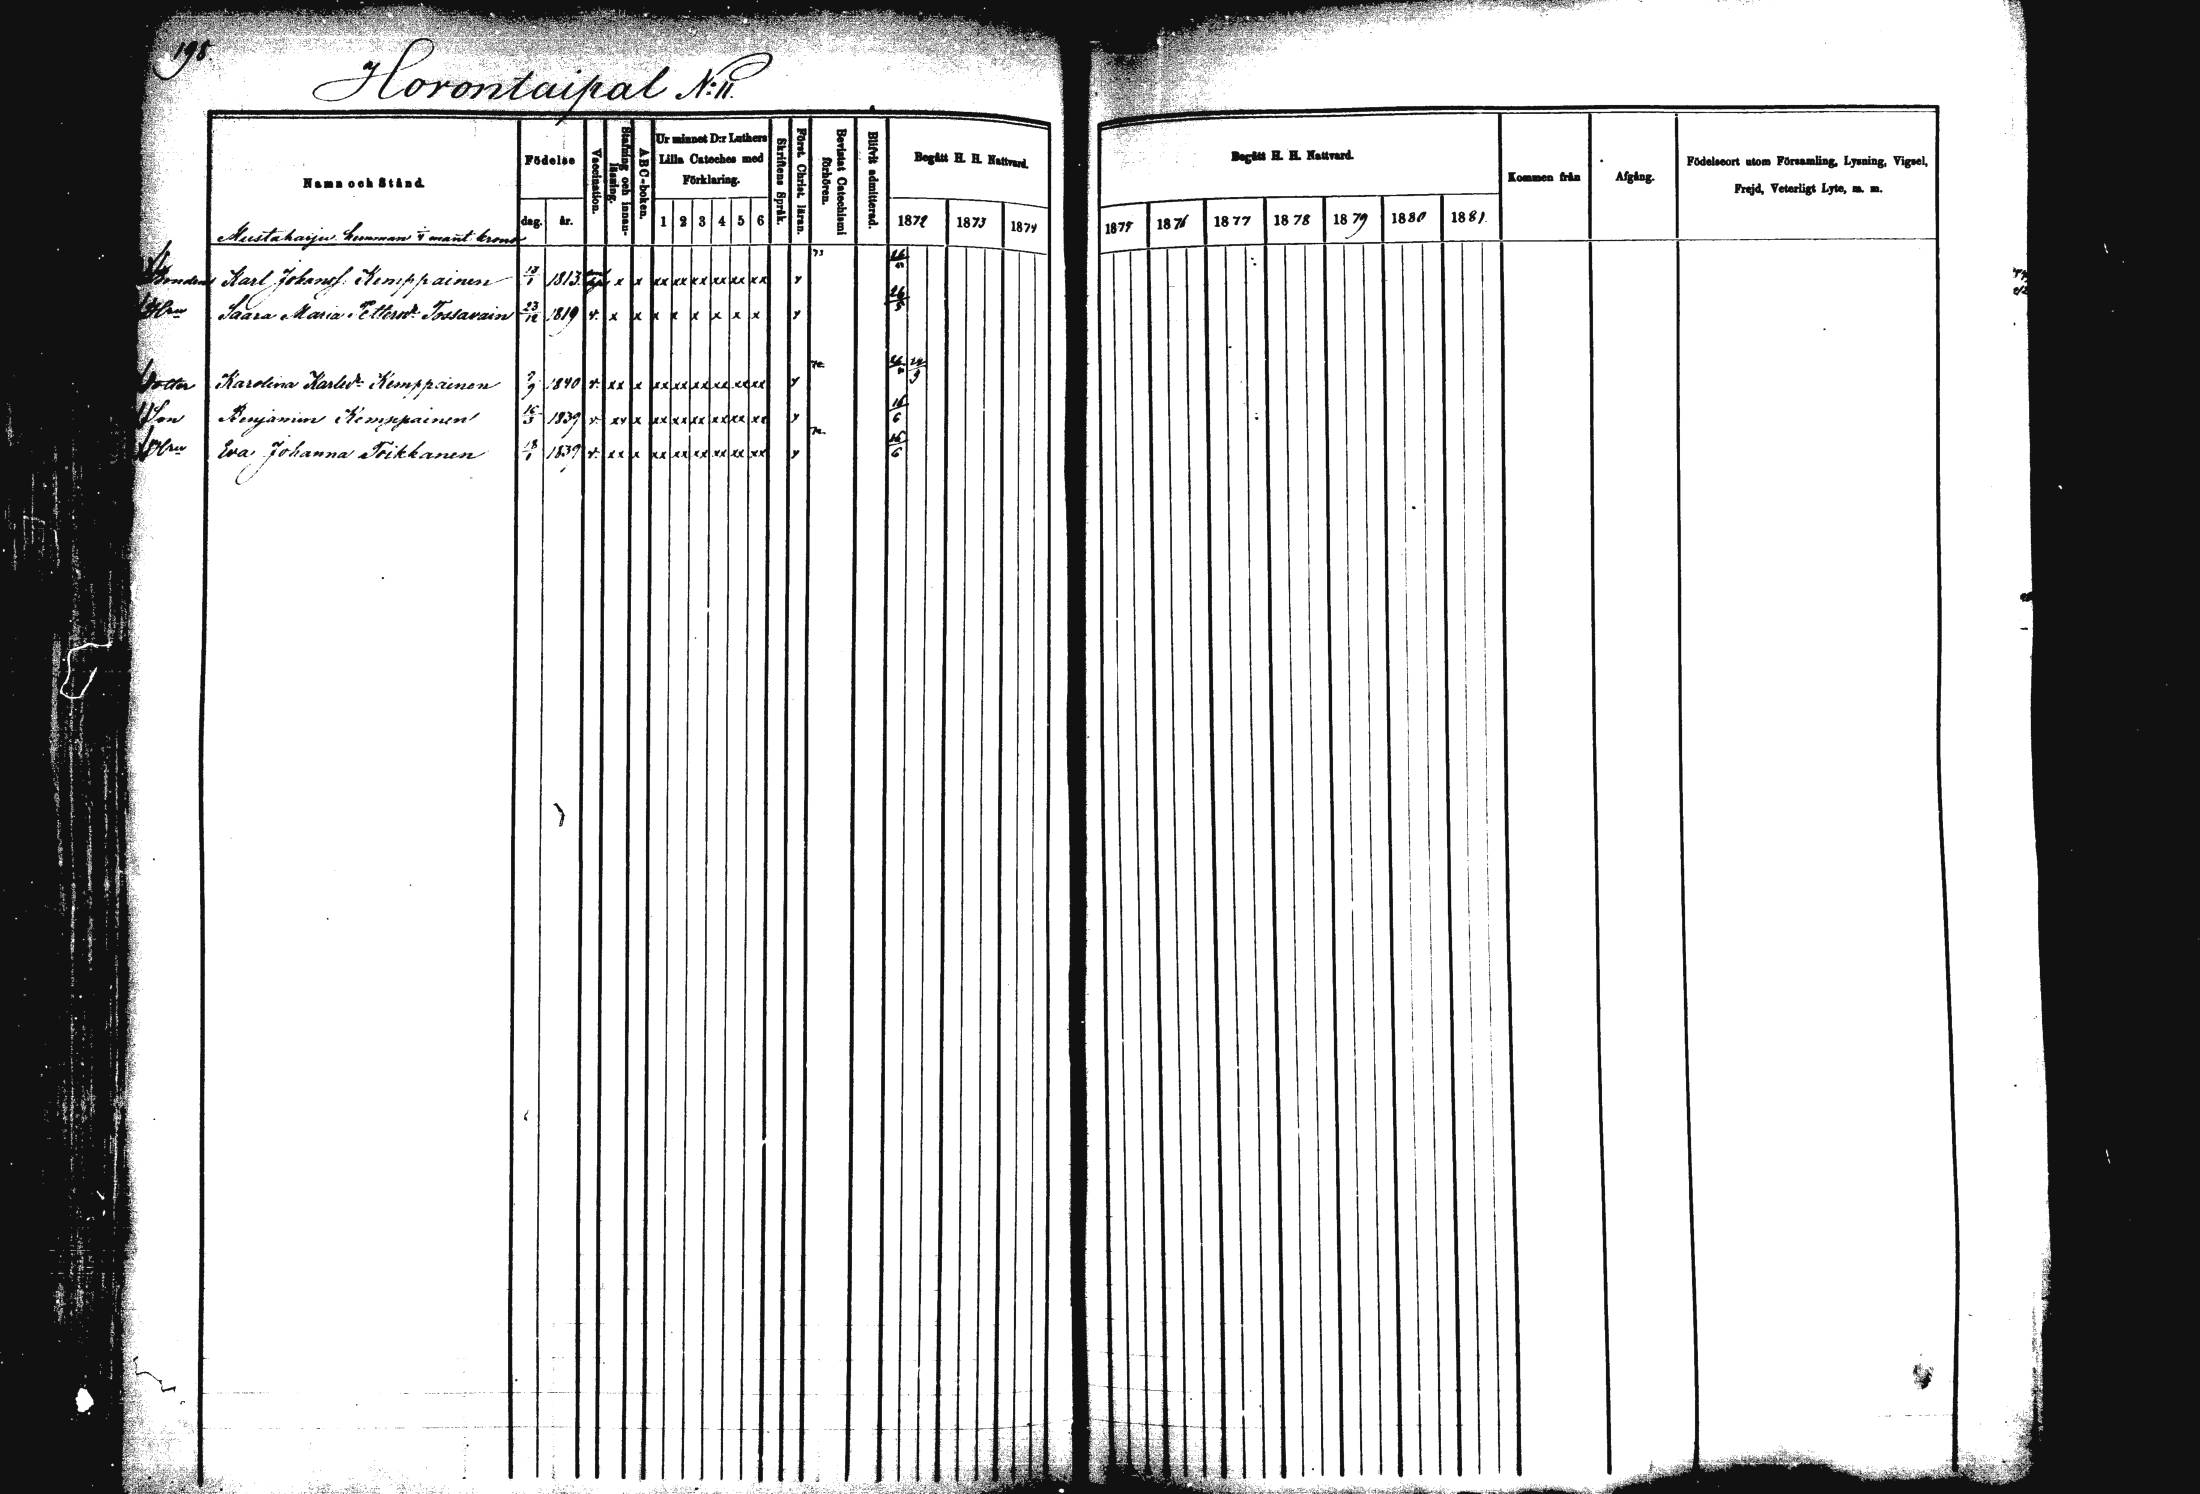 198.
Horontaipal N:o 11.
Namn och Stånd.
Födelse
dag.
år.
Vaccination.
Stafning och innanläsning.
ABC-boken.
Ur minnet D:r Luthers Lilla Cateches med Förklaring.
1 2 3 4 5 6
Skriftens Språk.
Först. Christ. läran.
Bevistat Catechismi förhören.
Blifvit admitterad.
Begått H. H. Nattvard.
1872 1873 1874
Begått H. H. Nattvard.
1875 1876 1877 1878 1879 1880 1881.
Kommen från
Afgång.
Födelseort utom Församling, Lysning, Vigsel,
Frejd, Veterligt Lyte, m. m.
Mustaharju hemman mant krono
Bonden Karl Johansf. Kemppainen 1813 x x xx xx xx xx xx xx
Hru Saara Maria Pettersdr Tossavain 23/12 1819 v. x x x x x x x x
Dotter Karolina Karlsdr Kemppainen 1840 v. xx x xx xx xx xx xx xx
Son Benjamin Kemppainen 16/3 1839 v. xx x xx xx xx xx xx xx 16/6
Hru Eva Johanna Toikkanen 1839 v. xx x xx xx xx xx xx xx 16/6